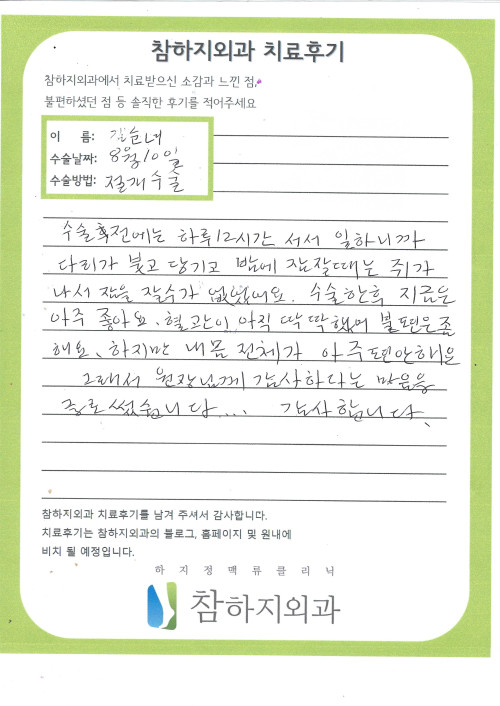 참하지외과 치료후기
참하지외과에서 치료받으신 소감과 느낀 점,
불편하셨던 점 등 솔직한 후기를 적어주세요
이 름: 길순녀
수술날짜: 8월10일
수술방법: 절개수술
수술후전에는 하루12시간 서서 일하니까
다리가 붓고 당기고 밤에 잠잘때는 쥐가
나서 잠을 잘수가 없었어요. 수술한후 지금은
아주 좋아요. 혈관이 아직 딱딱했어 불편은좀
해요. 하지만 내몸 전체가 아주편안해요
그래서 원장님께 감사하다는 마음을
글로썼습니다... 감사합니다.
참하지외과 치료후기를 남겨 주셔서 감사합니다.
치료후기는 참하지외과의 블로그, 홈페이지 및 원내에
비치 될 예정입니다.
하지정맥류클리닉
참하지외과